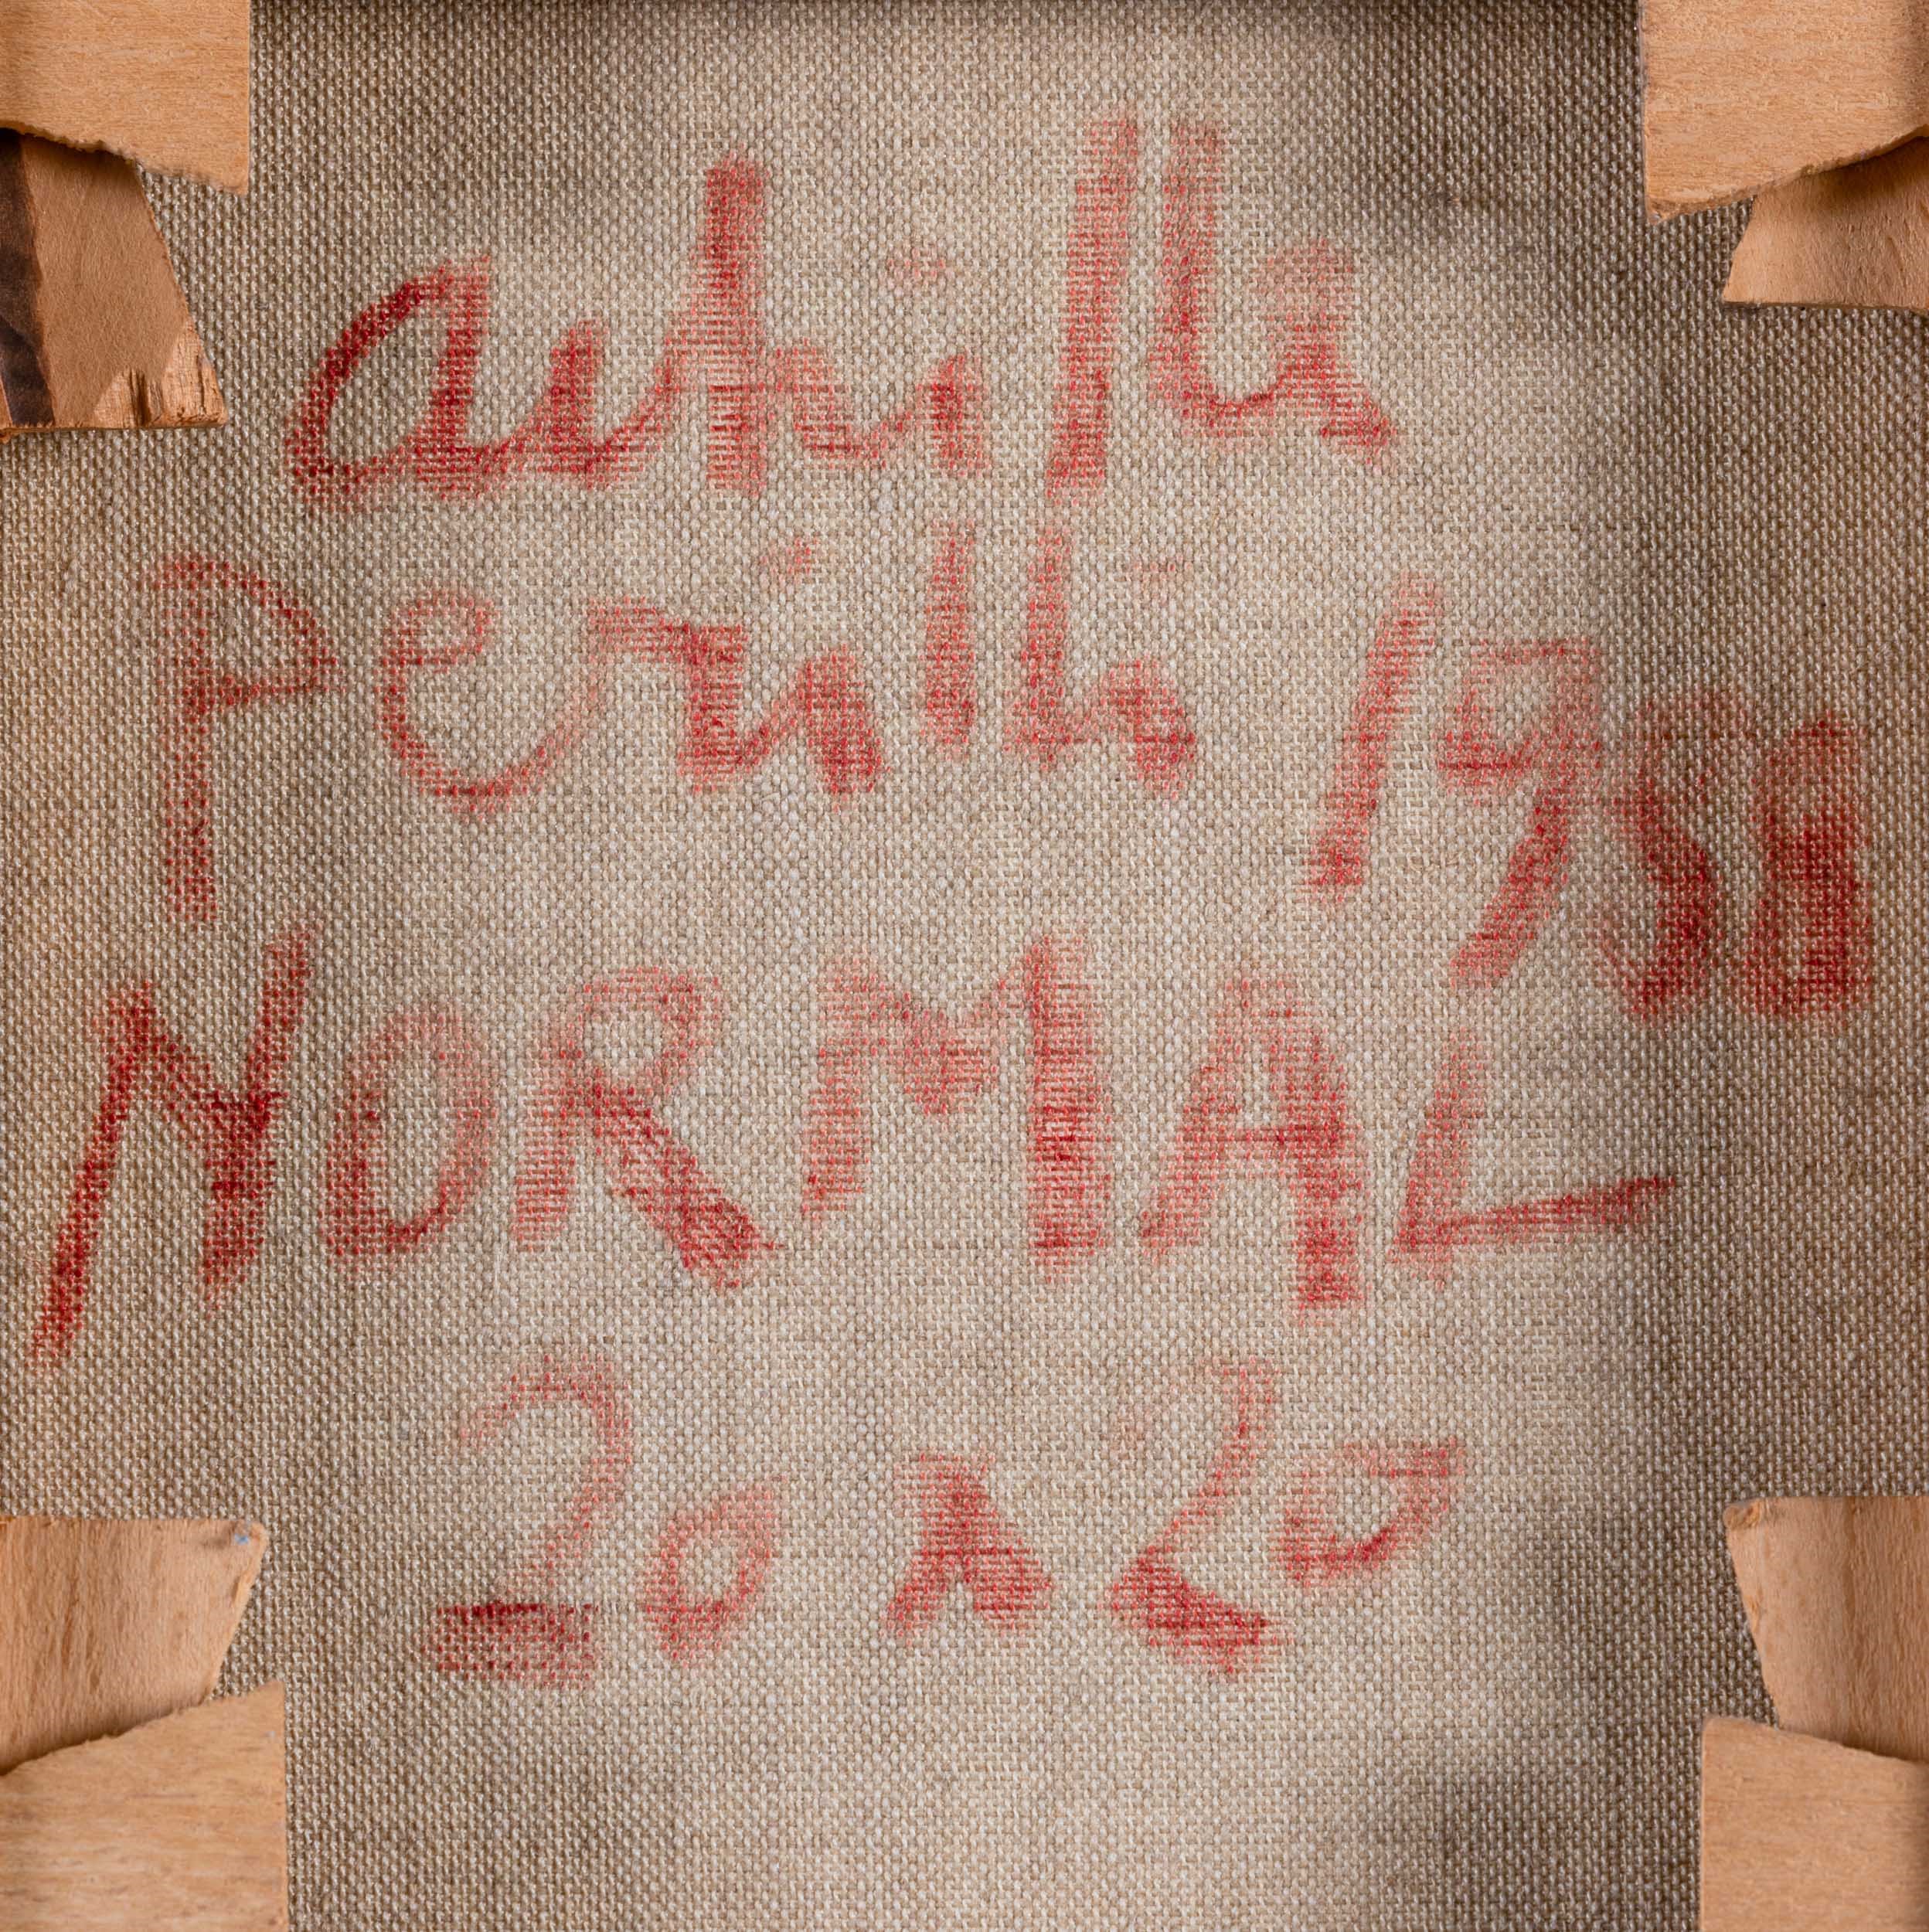 Achille
Perilli 1988
NORMAL
20 x 20